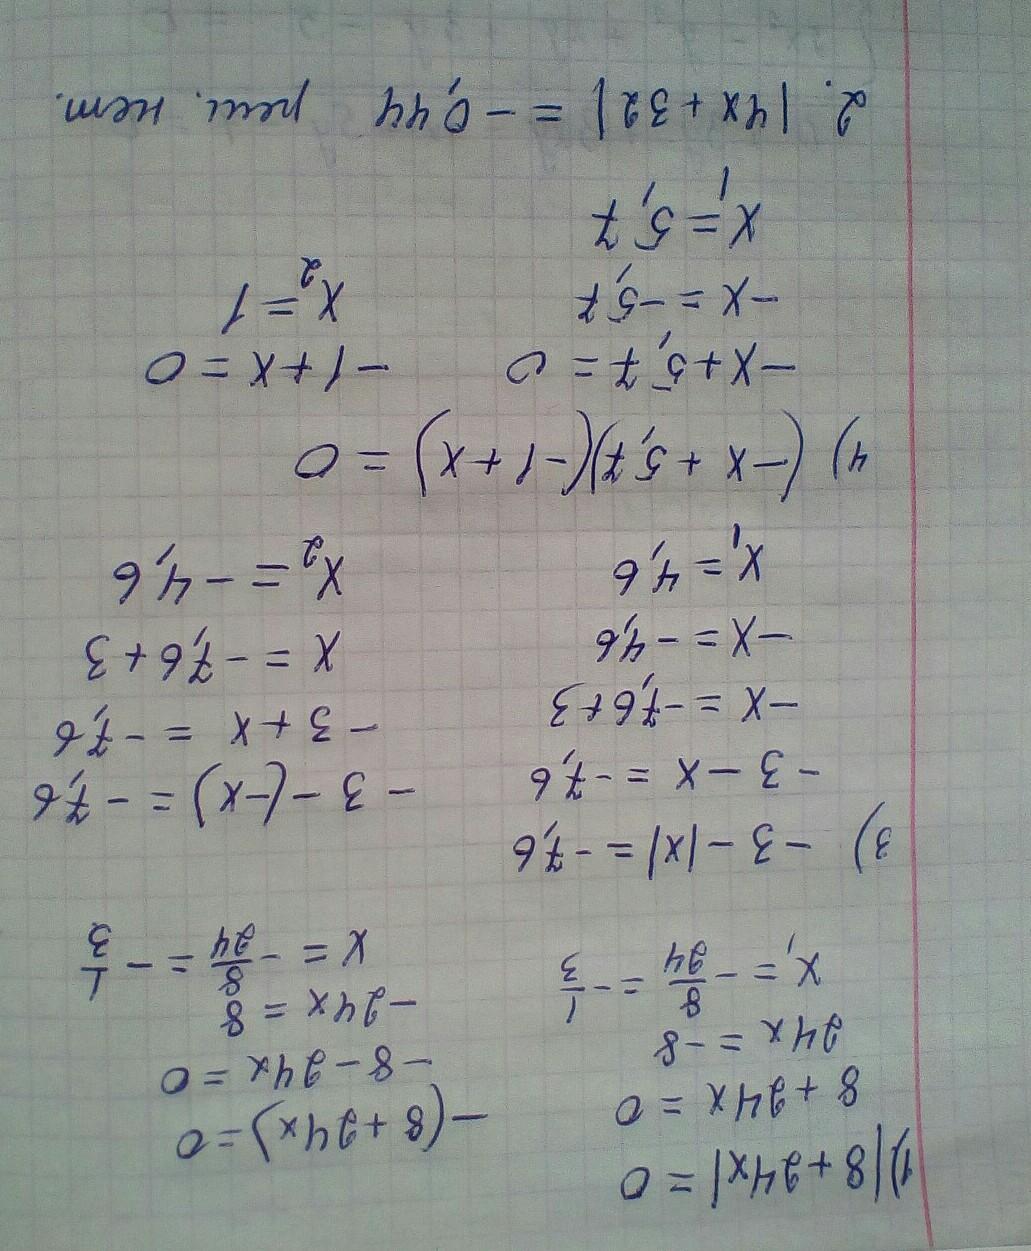 1) |8+24x| = 0
8+24x = 0
24x = -8
x₁ = -8/24 = -1/3
-(8+24x) = 0
-8-24x = 0
-24x = 8
x = -8/24 = -1/3
3) -3-|x| = -7,6
-3-x = -7,6
-x = -7,6+3
-x = -4,6
x₁ = 4,6
-3-(-x) = -7,6
-3+x = -7,6
x = -7,6+3
x₂ = -4,6
4) (-x+5,7)(-1+x) = 0
-x+5,7 = 0
-x = -5,7
x₁ = 5,7
-1+x = 0
x₂ = 1
2. |4x+32| = -0,44 реш. нет.